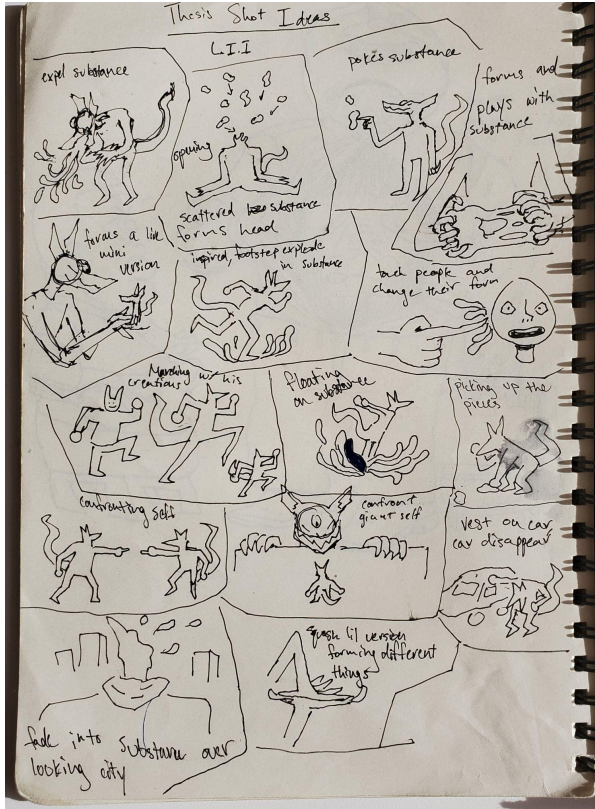 Thesis Shot Ideas
L.I.I
expel substance
opening
scattered substance
forms head
pokes substance
forms and
plays with
substance
forms a live
mini
version
inspired, footstep explode
in substance
touch people and
change their form
Marching with his
creations
floating
on substance
picking up the
pieces
confronting self
confront
giant self
rest on car,
car disappear
fade into substance over
looking city
squash lil version
forming different
things